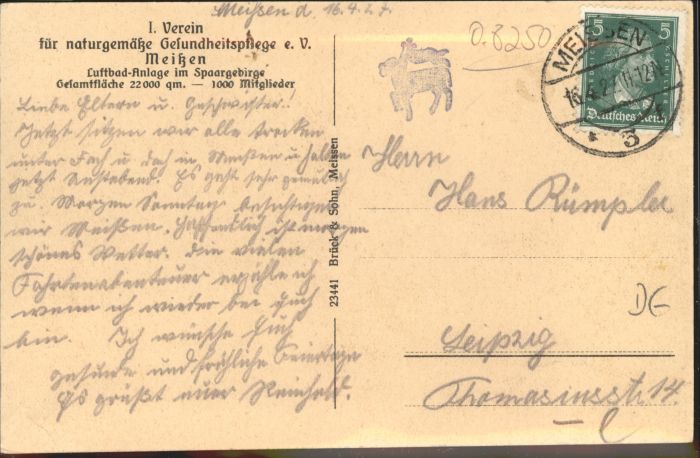 Meissen d 16.4.27.
I. Verein
für naturgemäße Gesundheitspflege e. V.
Meißen
Luftbad-Anlage im Spaargebirge
Gesamtfläche 22000 qm. — 1000 Mitglieder
Liebe Eltern u. Geschwister!
Jetzt sitzen wir alle trocken
unter Fach u. Dach in Meißen u. halten
jetzt Rastabend. Es geht sehr gemütlich
zu. Morgen Sonntag besichtigen
wir Meißen. Hoffentlich ist morgen
schönes Wetter. Die vielen
Fahrtenabenteuer erzähle ich
wenn ich wieder bei Euch
bin. Ich wünsche Euch
gesunde und fröhliche Feiertage
Es grüßt euer Reinhold.
23441 Brück & Sohn, Meissen
0.8250
MEISSEN
16.4.27
3
5 5
Deutsches Reich
Herrn
Hans Rümpler
DE
Leipzig
Thomasiusstr. 14.